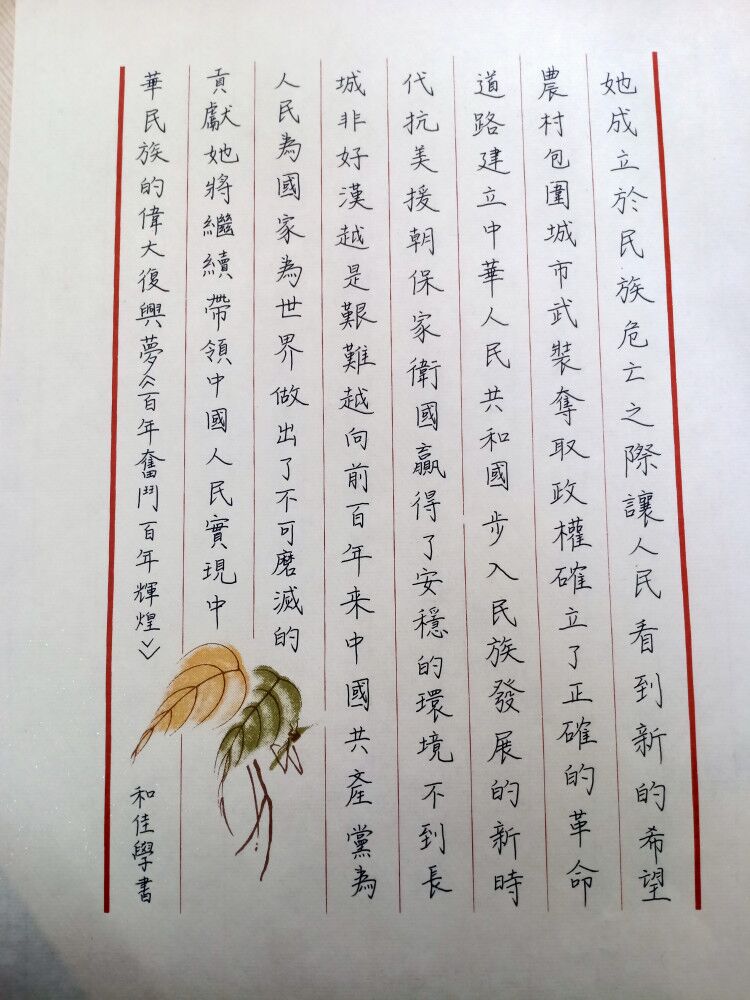 她成立於民族危亡之際讓人民看到新的希望
農村包圍城市武裝奪取政權確立了正確的革命
道路建立中華人民共和國步入民族發展的新時
代抗美援朝保家衛國贏得了安穩的環境不到長
城非好漢越是艱難越向前百年来中國共產黨為
人民為國家為世界做出了不可磨滅的
貢獻她將繼續帶領中國人民實現中
華民族的偉大復興夢《百年奮鬥百年輝煌》
和佳學書